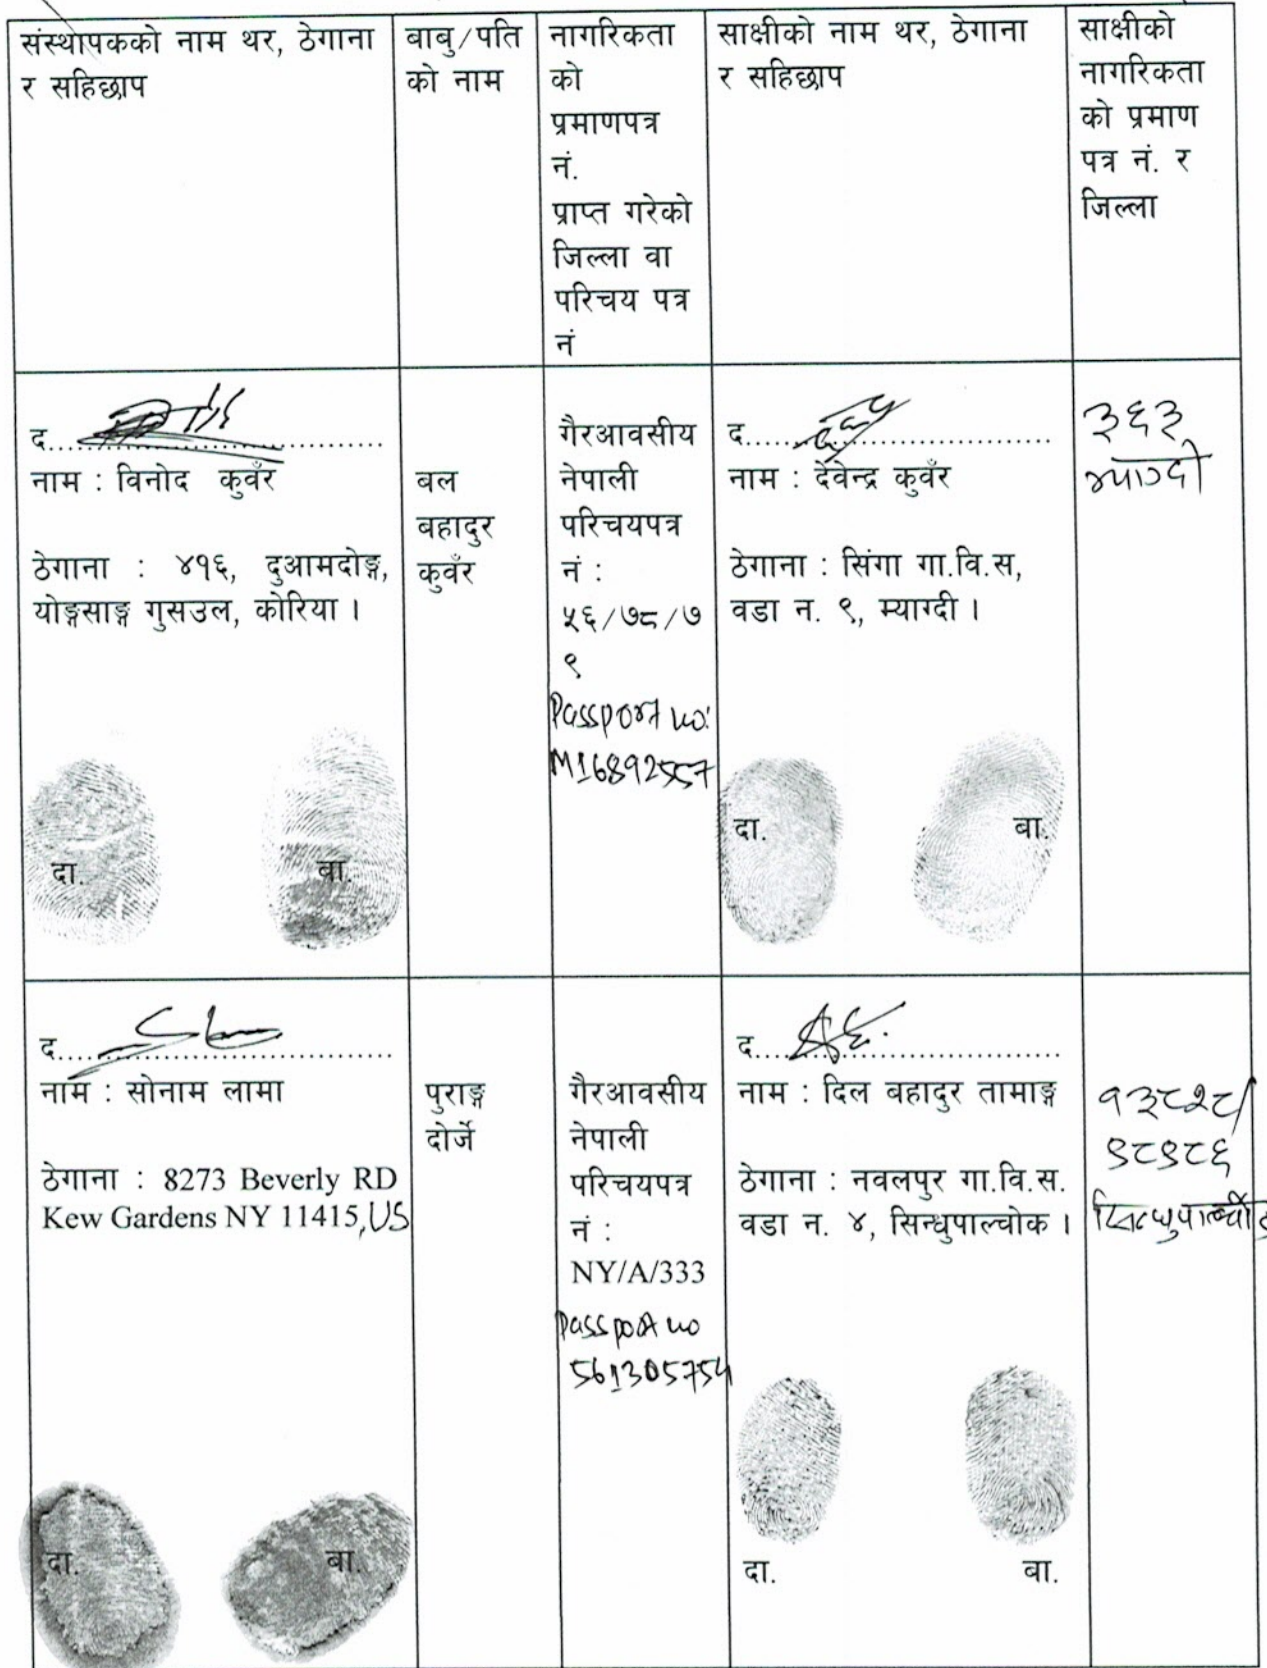 संस्थापकको नाम थर, ठेगाना
र सहिछाप
बाबु/पति
को नाम
नागरिकता
को
प्रमाणपत्र
नं.
प्राप्त गरेको
जिल्ला वा
परिचय पत्र
नं
साक्षीको नाम थर, ठेगाना
र सहिछाप
साक्षीको
नागरिकता
को प्रमाण
पत्र नं. र
जिल्ला
द...............................
नाम : विनोद कुवँर
ठेगाना : ४१६, दुआमदोङ्ग,
योङ्गसाङ्ग गुसउल, कोरिया ।
दा.
बा.
बल
बहादुर
कुवँर
गैरआवसीय
नेपाली
परिचयपत्र
नं :
५६/७८/७
९
Passport no:
M16892557
द...............................
नाम : देवेन्द्र कुवँर
ठेगाना : सिंगा गा.वि.स,
वडा न. ९, म्याग्दी ।
दा.
बा.
३६३
म्याग्दी
द...............................
नाम : सोनाम लामा
ठेगाना : 8273 Beverly RD
Kew Gardens NY 11415,US
दा.
बा.
पुराङ्ग
दोर्जे
गैरआवसीय
नेपाली
परिचयपत्र
नं :
NY/A/333
Passport no
561305754
द...............................
नाम : दिल बहादुर तामाङ्ग
ठेगाना : नवलपुर गा.वि.स.
वडा न. ४, सिन्धुपाल्चोक ।
दा.
बा.
१३८२८/
९८९८६